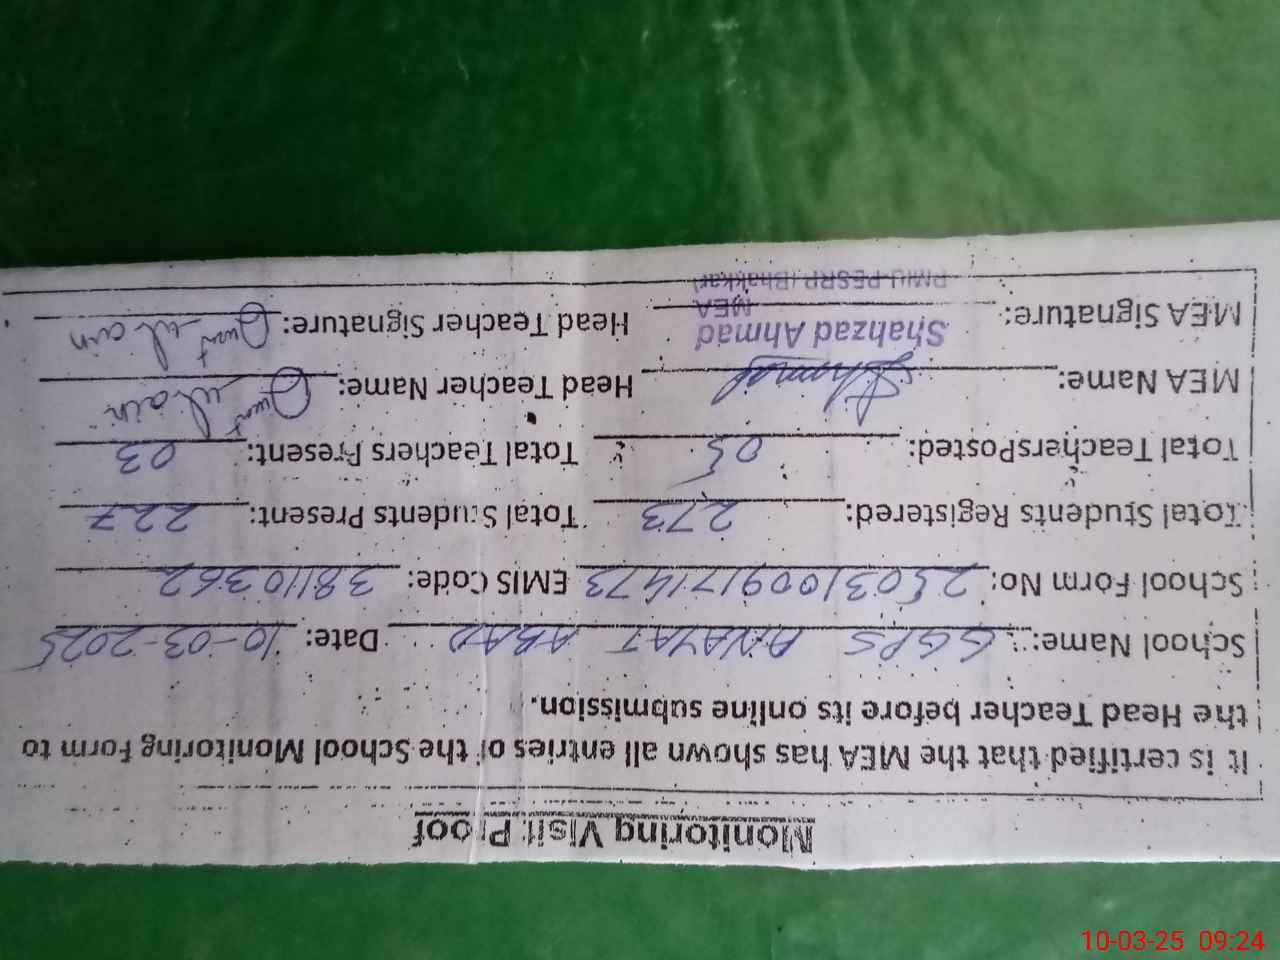 Monitoring Visit Proof
It is certified that the MEA has shown all entries of the School Monitoring Form to
the Head Teacher before its online submission.
School Name: GGPS ANAYAT ABAD Date: 10-03-2025
School Form No: 250310091711473 EMIS Code: 38110362
Total Students Registered: 273 Total Students Present: 227
Total TeachersPosted: 05 Total Teachers Present: 03
MEA Name: Head Teacher Name: Qurat ul ain
MEA Signature: Shahzad Ahmad Head Teacher Signature: Qurat ul ain
MEA
PMIU-PESRP (Bhakkar)
10-03-25 09:24